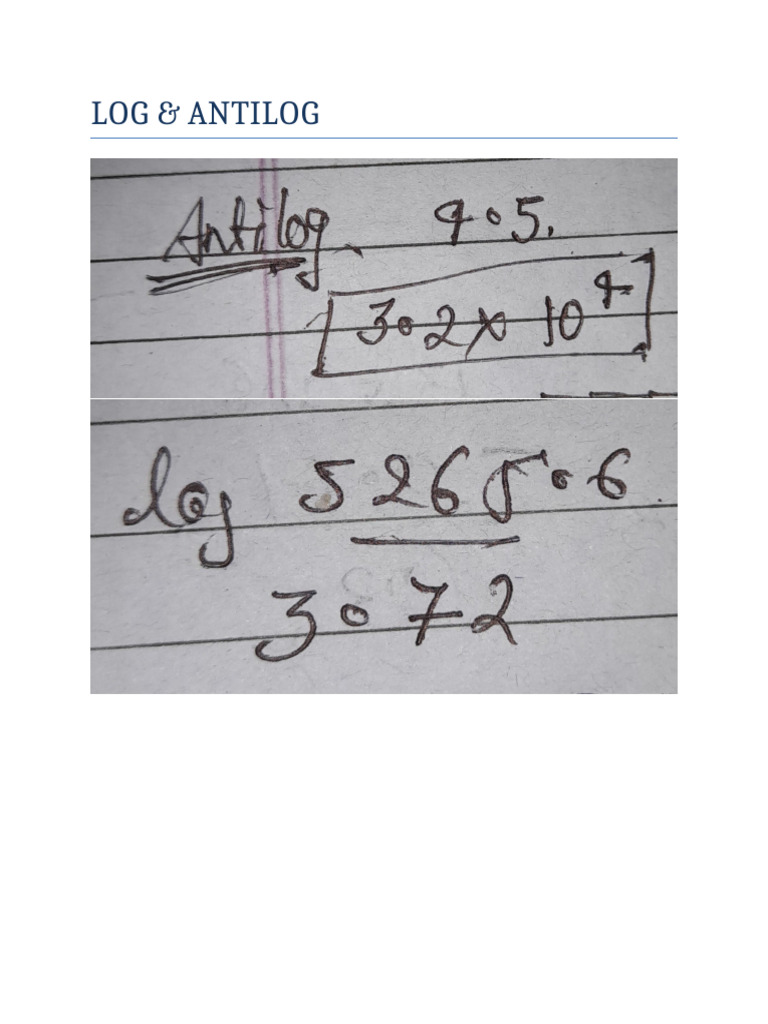 LOG & ANTILOG
Antilog 4.5.
3.2 x 10^4
log 5265.6
3.72